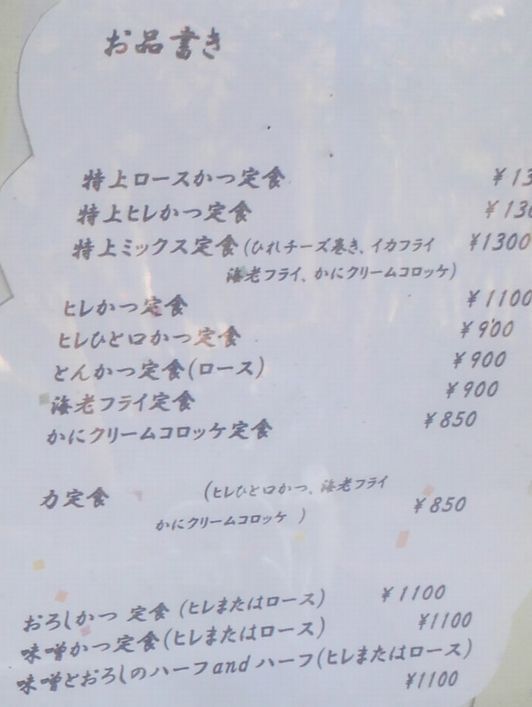 お品書き
特上ロースかつ定食 ¥13
特上ヒレかつ定食 ¥130
特上ミックス定食(ひれチーズ巻き、イカフライ ¥1300
海老フライ、かにクリームコロッケ)
ヒレかつ定食 ¥1100
ヒレひと口かつ定食 ¥900
とんかつ定食(ロース) ¥900
海老フライ定食 ¥900
かにクリームコロッケ定食 ¥850
力定食 (ヒレひと口かつ、海老フライ
かにクリームコロッケ ) ¥850
おろしかつ 定食 (ヒレまたはロース) ¥1100
味噌かつ定食(ヒレまたはロース) ¥1100
味噌とおろしのハーフandハーフ(ヒレまたはロース)
¥1100